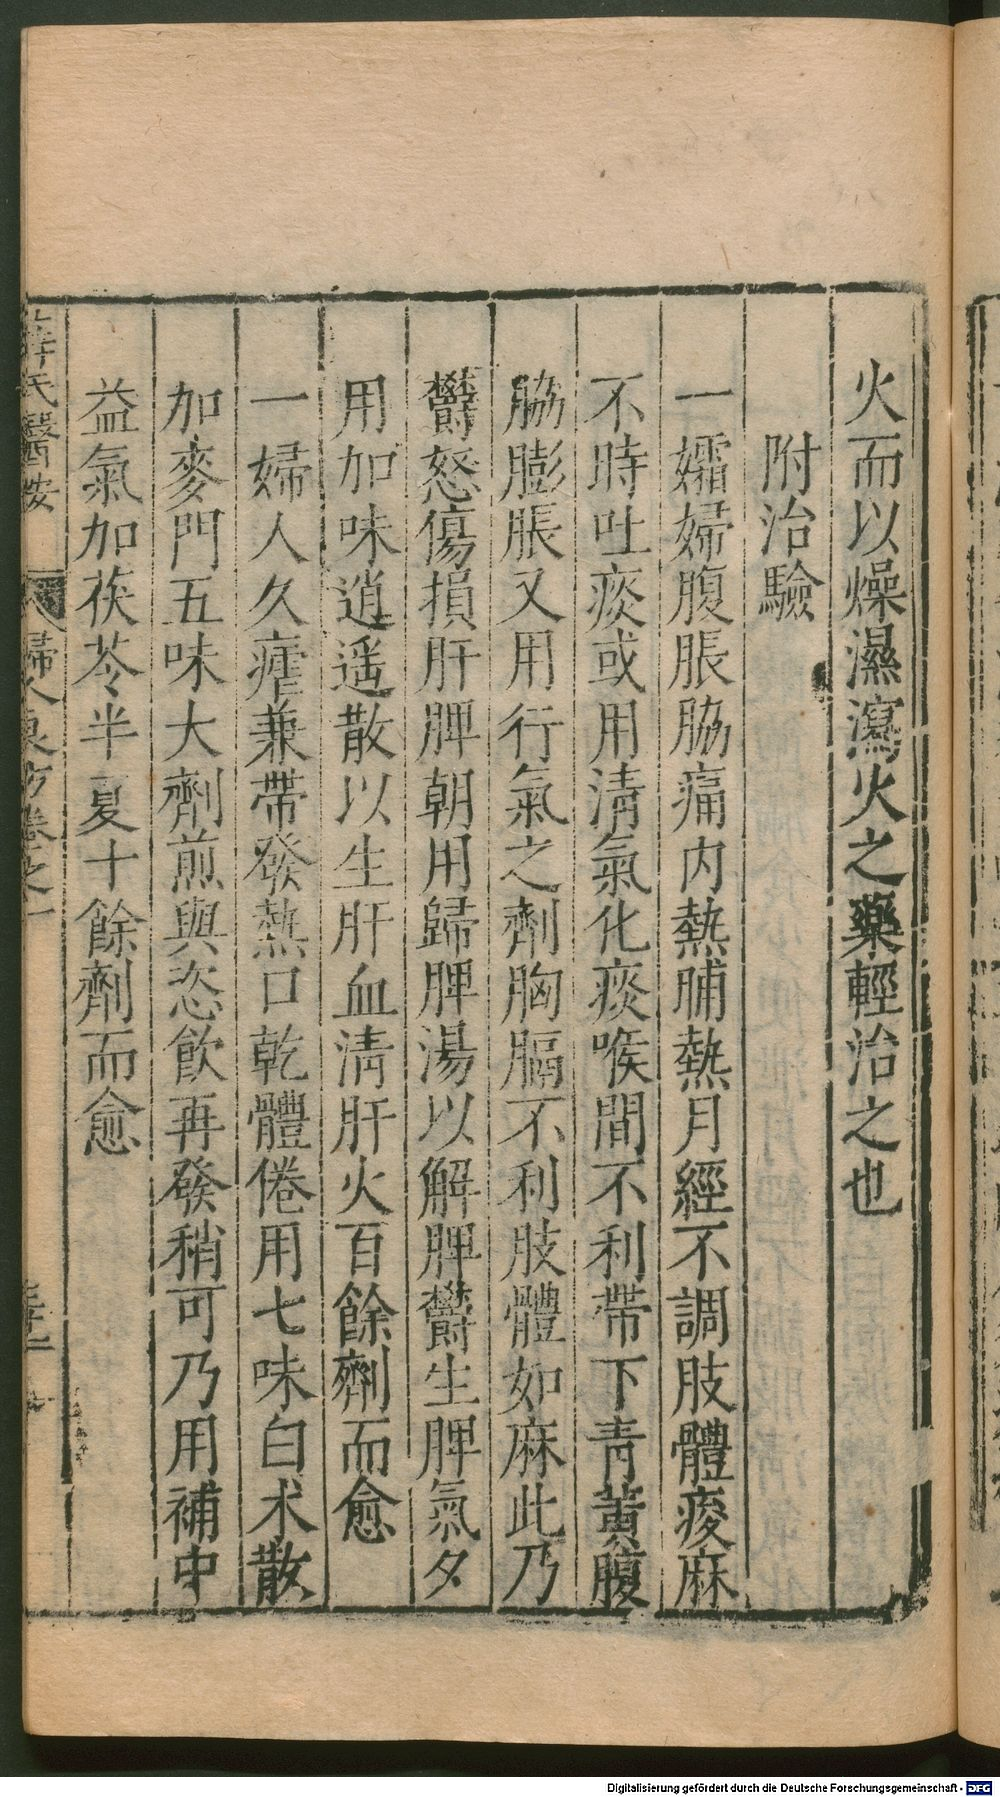 火而以燥濕瀉火之藥輕治之也
附治驗
一孀婦腹脹脇痛内熱晡熱月經不調肢體痠麻
不時吐痰或用淸氣化痰喉間不利帶下青黃腹
脇膨脹又用行氣之劑胸膈不利肢體如麻此乃
欝怒傷損肝脾朝用歸脾湯以解脾欝生脾氣夕
用加味逍遥散以生肝血清肝火百餘劑而愈
一婦人久瘧兼帶發熱口乾體倦用七味白术散
加麥門五味大劑煎與恣飲再發稍可乃用補中
益氣加茯苓半夏十餘劑而愈
薛氏醫按 婦人良方卷之一
Digitalisierung gefördert durch die Deutsche Forschungsgemeinschaft - DFG